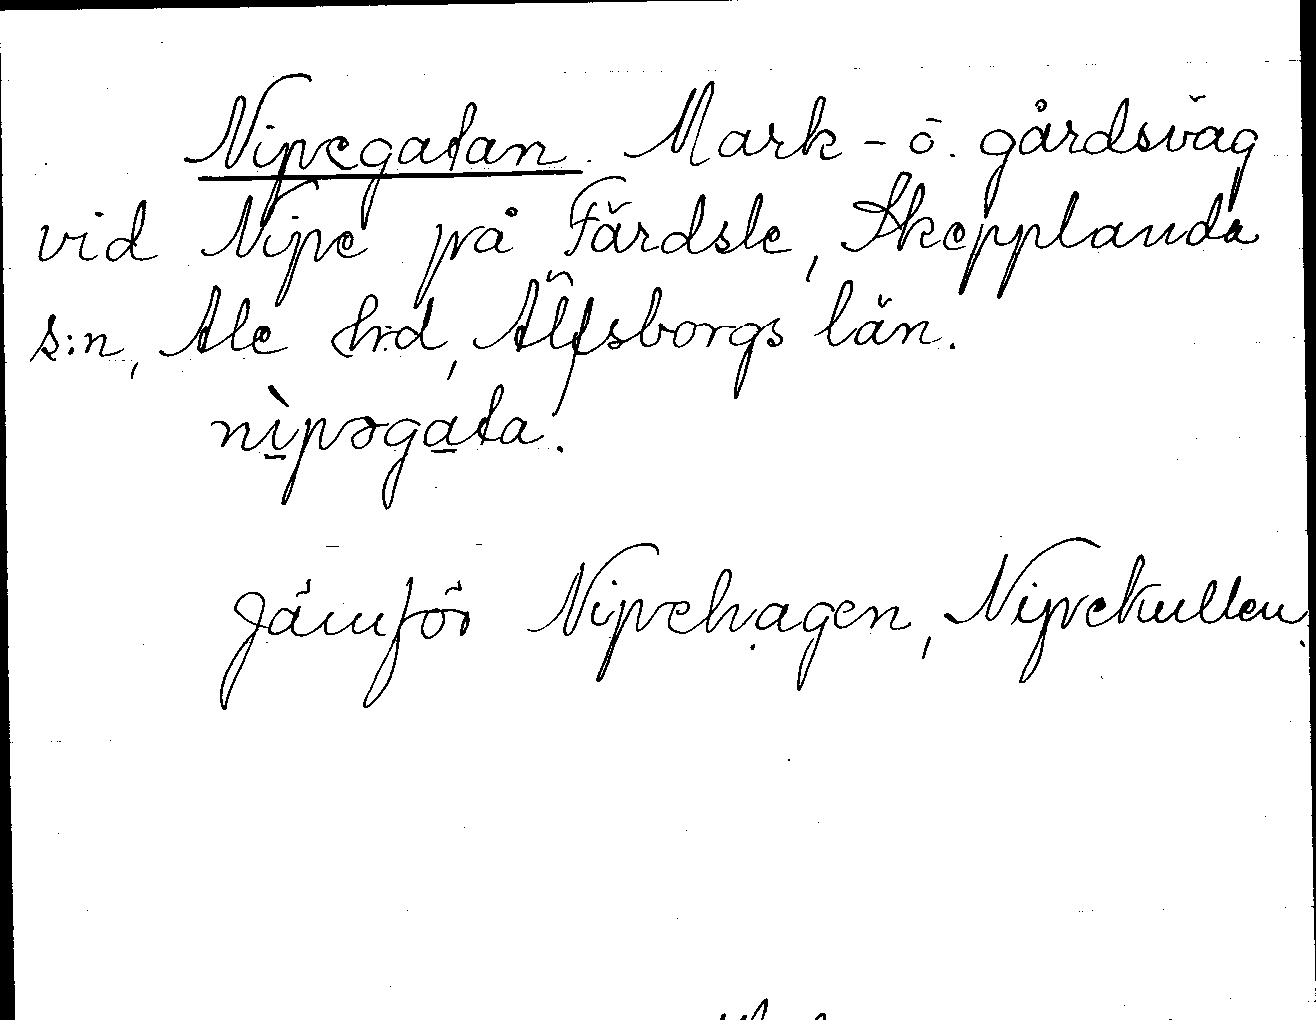 Nipegatan. Mark- o. gårdsväg
vid Nipe på Färdsle, Skepplanda
s:n, Ale hrd, Älfsborgs län.
nìpəgata.
Jämför Nipehagen, Nipekullen.